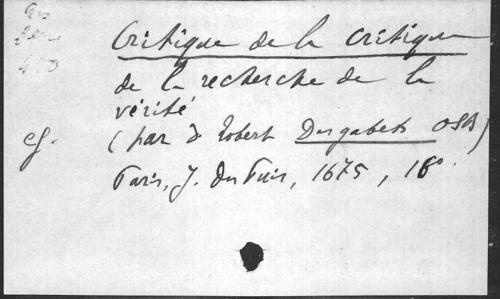 Critique de la critique
de la recherche de la
vérité
cf. (par D Robert Desgabets OSB)
Paris, J. Du Puis, 1675, 18º.